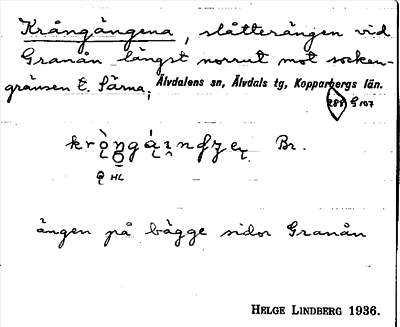 Krångängena, slåtterängen vid
Granån längst norrut mot socken-
gränsen t. Särna, Älvdalens sn, Älvdals tg, Kopparbergs län.
288 G 107
Br.
HL
ängen på bägge sidor Granån
HELGE LINDBERG 1936.